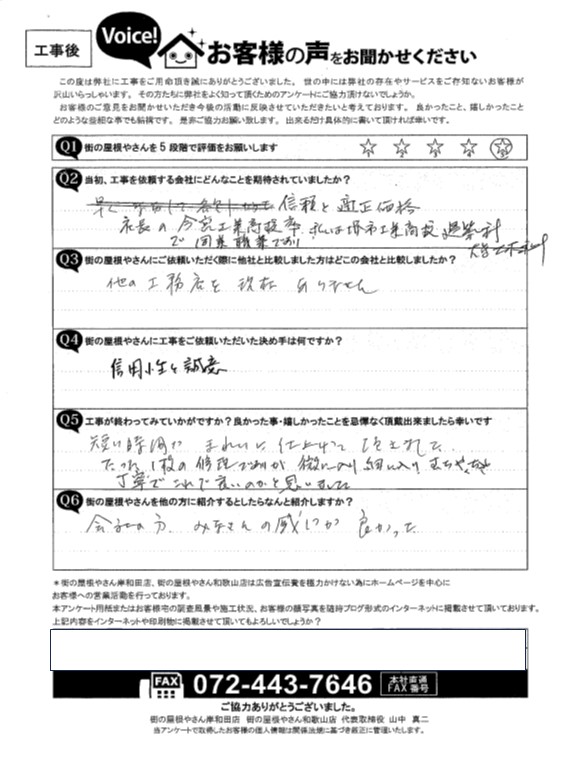 工事後
Voice!
お客様の声をお聞かせください
この度は弊社に工事をご用命頂き誠にありがとうございました。世の中には弊社の存在やサービスをご存知ないお客様が
沢山いらっしゃいます。その方たちに弊社をよく知って頂くためのアンケートにご協力頂けないでしょうか。
お客様のご意見をお聞かせいただき今後の活動に反映させていただきたいと考えております。良かったこと、嬉しかったこと
どのような些細な事でも結構です。是非ご協力お願い致します。出来るだけ具体的に書いて頂ければ幸いです。
Q1 街の屋根やさんを5段階で評価をお願いします
Q2 当初、工事を依頼する会社にどんなことを期待されていましたか?
信頼と適正価格
社長の今宮工業高校卒、私は堺市工業高校建築科
で同業職業であり
Q3 街の屋根やさんにご依頼いただく際に他社と比較しました方はどの会社と比較しましたか?
他の工務店を現在ありません
Q4 街の屋根やさんに工事をご依頼いただいた決め手は何ですか?
信用性と誠意
Q5 工事が終わってみていかがですか?良かった事・嬉しかったことを忌憚なく頂戴出来ましたら幸いです
短い時間できれいに仕上げて頂きました
たった1枚の修理であるが微に入り細に入り
丁寧でこれで良いのかと思いました
Q6 街の屋根やさんを他の方に紹介するとしたらなんと紹介しますか?
会社の方、みなさんの感じが良かった
*街の屋根やさん岸和田店、街の屋根やさん和歌山店は広告宣伝費を極力かけない為にホームページを中心に
お客様への営業活動を行っております。
本アンケート用紙またはお客様宅の調査風景や施工状況、お客様の顔写真を随時ブログ形式のインターネットに掲載させて頂いております。
上記内容をインターネットや印刷物に掲載させて頂いてもよろしいでしょうか?
FAX 072-443-7646 本社直通FAX番号
ご協力ありがとうございました。
街の屋根やさん岸和田店 街の屋根やさん和歌山店 代表取締役 山中 真二
当アンケートで取得したお客様の個人情報は関係法規に基づき厳正に管理いたします。